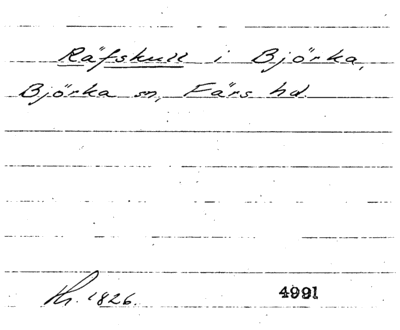 Räfskull i Björka,
Björka sn, Färs hd.
Hr. 1826. 4991